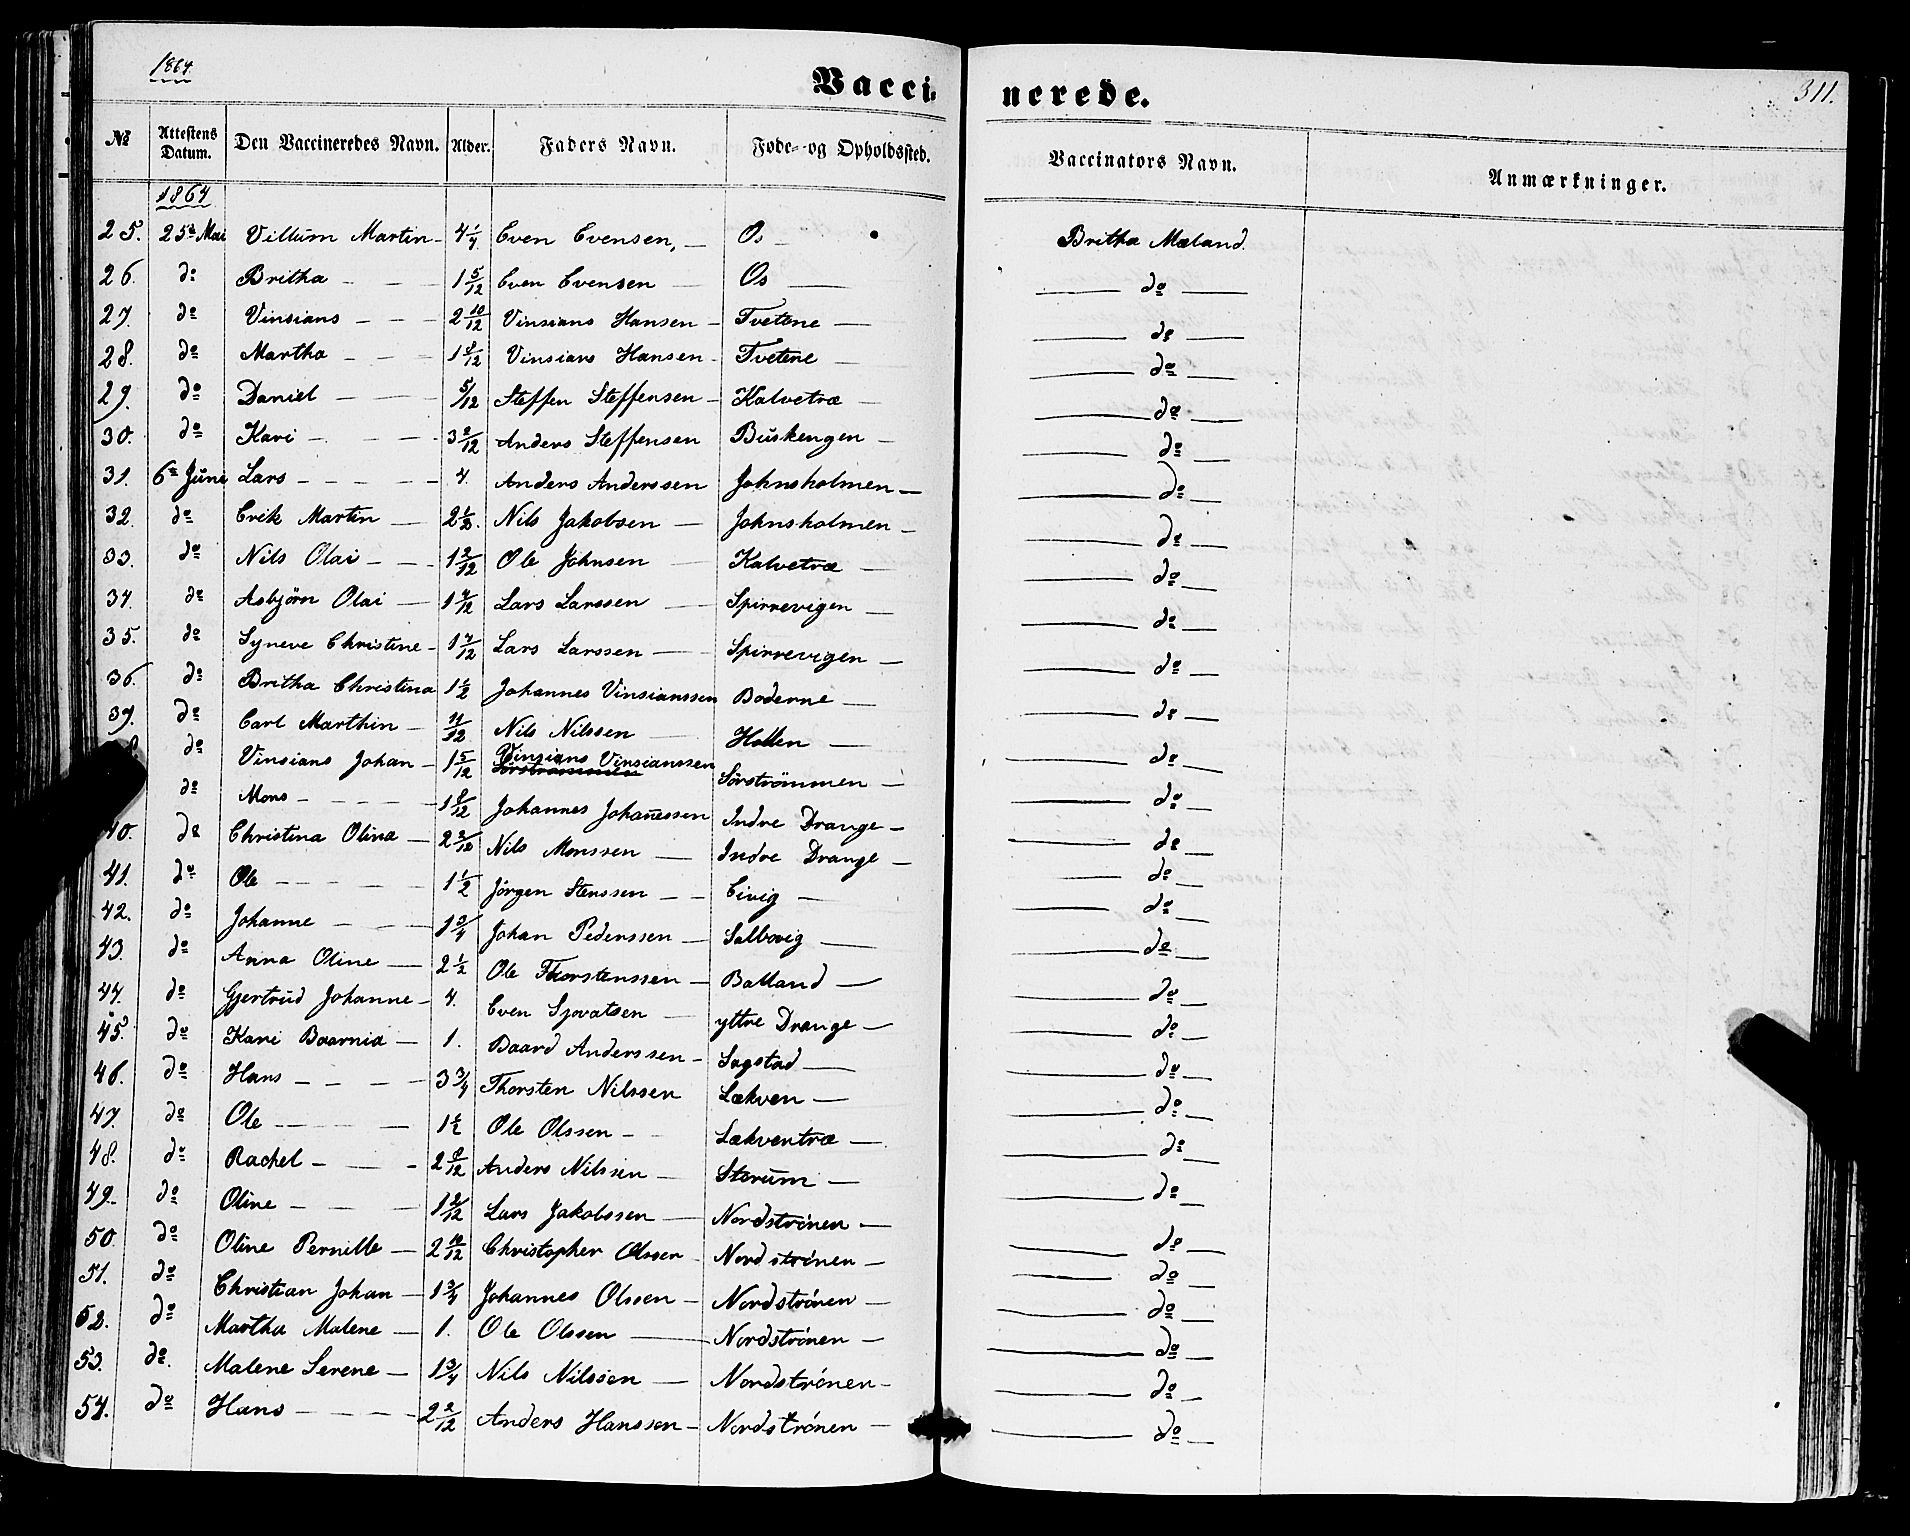 1864.
Vacci- nerede.
311.
No Attestens Datum. Den Vaccineredes Navn. Alder. Faders Navn. Føde- og Opholdssted. Vaccinators Navn. Anmærkninger.
1864
25. 25de Mai Villum Martin - 4 1/4 Even Evensen, — Os - Britha Mæland.
26. do Britha - - - 1 5/12 Even Evensen — Os — do —
27. do Vinsians - - - 2 10/12 Vinsians Hansen - Tvetene — do —
28. do Martha - - - 1 8/12 Vinsians Hansen - Tvetene — do —
29. do Daniel - - - 5/12 Steffen Steffensen - Kalvetræ — do —
30. do Kari - - - 3 2/12 Anders Steffensen Buskengen — do —
31. 6te Juni Lars - - - - 4. Anders Anderssen Johnsholmen — do —
32. do Erik Martin — 2 1/2. Nils Jakobsen — Johnsholmen — do —
33. do Nils Olai - - - 1 2/12 Ole Johnsen — Kalvetræ — do —
34. do Asbjörn Olai — 1 7/12 Lars Larssen — Spirrevigen — do —
35. do Syneve Christine - 1 7/12 Lars Larssen — Spirrevigen — do —
36. do Britha Christina 1 1/2 Johannes Vinsianssen Boderne — do —
37. do Carl Marthin - 11/12 Nils Nilssen — Hollen — do —
8 do Vinsians Johan - 1 5/12 Vinsians Vinsianssen Sörströmmen — do —
Sörströmmen
do Mons - - - - 1 8/12 Johannes Johanessen Indre Drange - do —
40. do Christina Olina — 2 2/12 Nils Monssen — Indre Drange — do —
41. do Ole - - - - 1 1/2 Jörgen Stenssen - - Eivig — do —
42. do Johanne - - - 1 3/4 Johan Pederssen - Salbovig — do —
43. do Anna Oline — 2 1/2 Ole Thorstenssen - Balland — do —
44. do Gjertrud Johanne - 4. Even Sjovatsen — yttre Drange — do —
45. do Kari Baarnia — 1. Baard Anderssen - Sagstad — do —
46. do Hans - - - - 3 3/4 Thorsten Nilssen Lækven — do —
47. do Ole - - - - 1 1/2 Ole Olssen - Lækventræ — do —
48. do Rachel - - - 2 8/12 Anders Nilssen — Storum — do —
49. do Oline - - - 1 2/12 Lars Jakobssen — Nordströnen — do —
50. do Oline Pernille — 2 10/12 Christopher Olssen - Nordströnen — do —
51. do Christian Johan - 1 3/4 Johannes Olssen - Nordströnen — do —
52. do Martha Malene — 1. Ole Olssen — Nordströnen — do —
53. do. Malene Serene — 1 3/4 Nils Nilssen — Nordströnen - do —
54. do Hans - - - - 2 2/12 Anders Hanssen - Nordströnen — do —